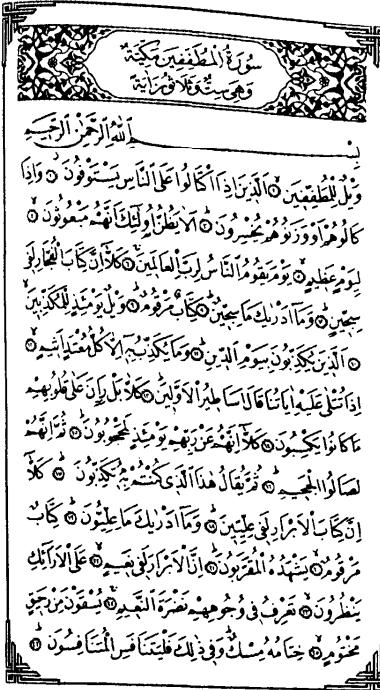 سُورَةُ الْمُطَفِّفِينَ مَكِّيَّةٌ
وَهِيَ سِتٌّ وَثَلَاثُونَ اٰيَةً
بِسْمِ اللّٰهِ الرَّحْمٰنِ الرَّحِيمِ
وَيْلٌ لِلْمُطَفِّفِينَ ۝١ اَلَّذِينَ اِذَا اكْتَالُوا عَلَى النَّاسِ يَسْتَوْفُونَ ۝٢ وَاِذَا
كَالُوهُمْ اَوْ وَزَنُوهُمْ يُخْسِرُونَ ۝٣ اَلَا يَظُنُّ اُولٰٓئِكَ اَنَّهُمْ مَبْعُوثُونَ ۝٤
لِيَوْمٍ عَظِيمٍ ۝٥ يَوْمَ يَقُومُ النَّاسُ لِرَبِّ الْعَالَمِينَ ۝٦ كَلَّٓا اِنَّ كِتَابَ الْفُجَّارِ لَفِي
سِجِّينٍ ۝٧ وَمَٓا اَدْرٰيكَ مَا سِجِّينٌ ۝٨ كِتَابٌ مَرْقُومٌ ۝٩ وَيْلٌ يَوْمَئِذٍ لِلْمُكَذِّبِينَ ۝١٠
اَلَّذِينَ يُكَذِّبُونَ بِيَوْمِ الدِّينِ ۝١١ وَمَا يُكَذِّبُ بِهِٓ اِلَّا كُلُّ مُعْتَدٍ اَثِيمٍ ۝١٢
اِذَا تُتْلٰى عَلَيْهِ اٰيَاتُنَا قَالَ اَسَاطِيرُ الْاَوَّلِينَ ۝١٣ كَلَّا بَلْ رَانَ عَلٰى قُلُوبِهِمْ
مَا كَانُوا يَكْسِبُونَ ۝١٤ كَلَّٓا اِنَّهُمْ عَنْ رَبِّهِمْ يَوْمَئِذٍ لَمَحْجُوبُونَ ۝١٥ ثُمَّ اِنَّهُمْ
لَصَالُوا الْجَحِيمِ ۝١٦ ثُمَّ يُقَالُ هٰذَا الَّذِي كُنْتُمْ بِهِ تُكَذِّبُونَ ۝١٧ كَلَّٓا
اِنَّ كِتَابَ الْاَبْرَارِ لَفِي عِلِّيِّينَ ۝١٨ وَمَٓا اَدْرٰيكَ مَا عِلِّيُّونَ ۝١٩ كِتَابٌ
مَرْقُومٌ ۝٢٠ يَشْهَدُهُ الْمُقَرَّبُونَ ۝٢١ اِنَّ الْاَبْرَارَ لَفِي نَعِيمٍ ۝٢٢ عَلَى الْاَرَٓائِكِ
يَنْظُرُونَ ۝٢٣ تَعْرِفُ فِي وُجُوهِهِمْ نَضْرَةَ النَّعِيمِ ۝٢٤ يُسْقَوْنَ مِنْ رَحِيقٍ
مَخْتُومٍ ۝٢٥ خِتَامُهُ مِسْكٌ وَفِي ذٰلِكَ فَلْيَتَنَافَسِ الْمُتَنَافِسُونَ ۝٢٦